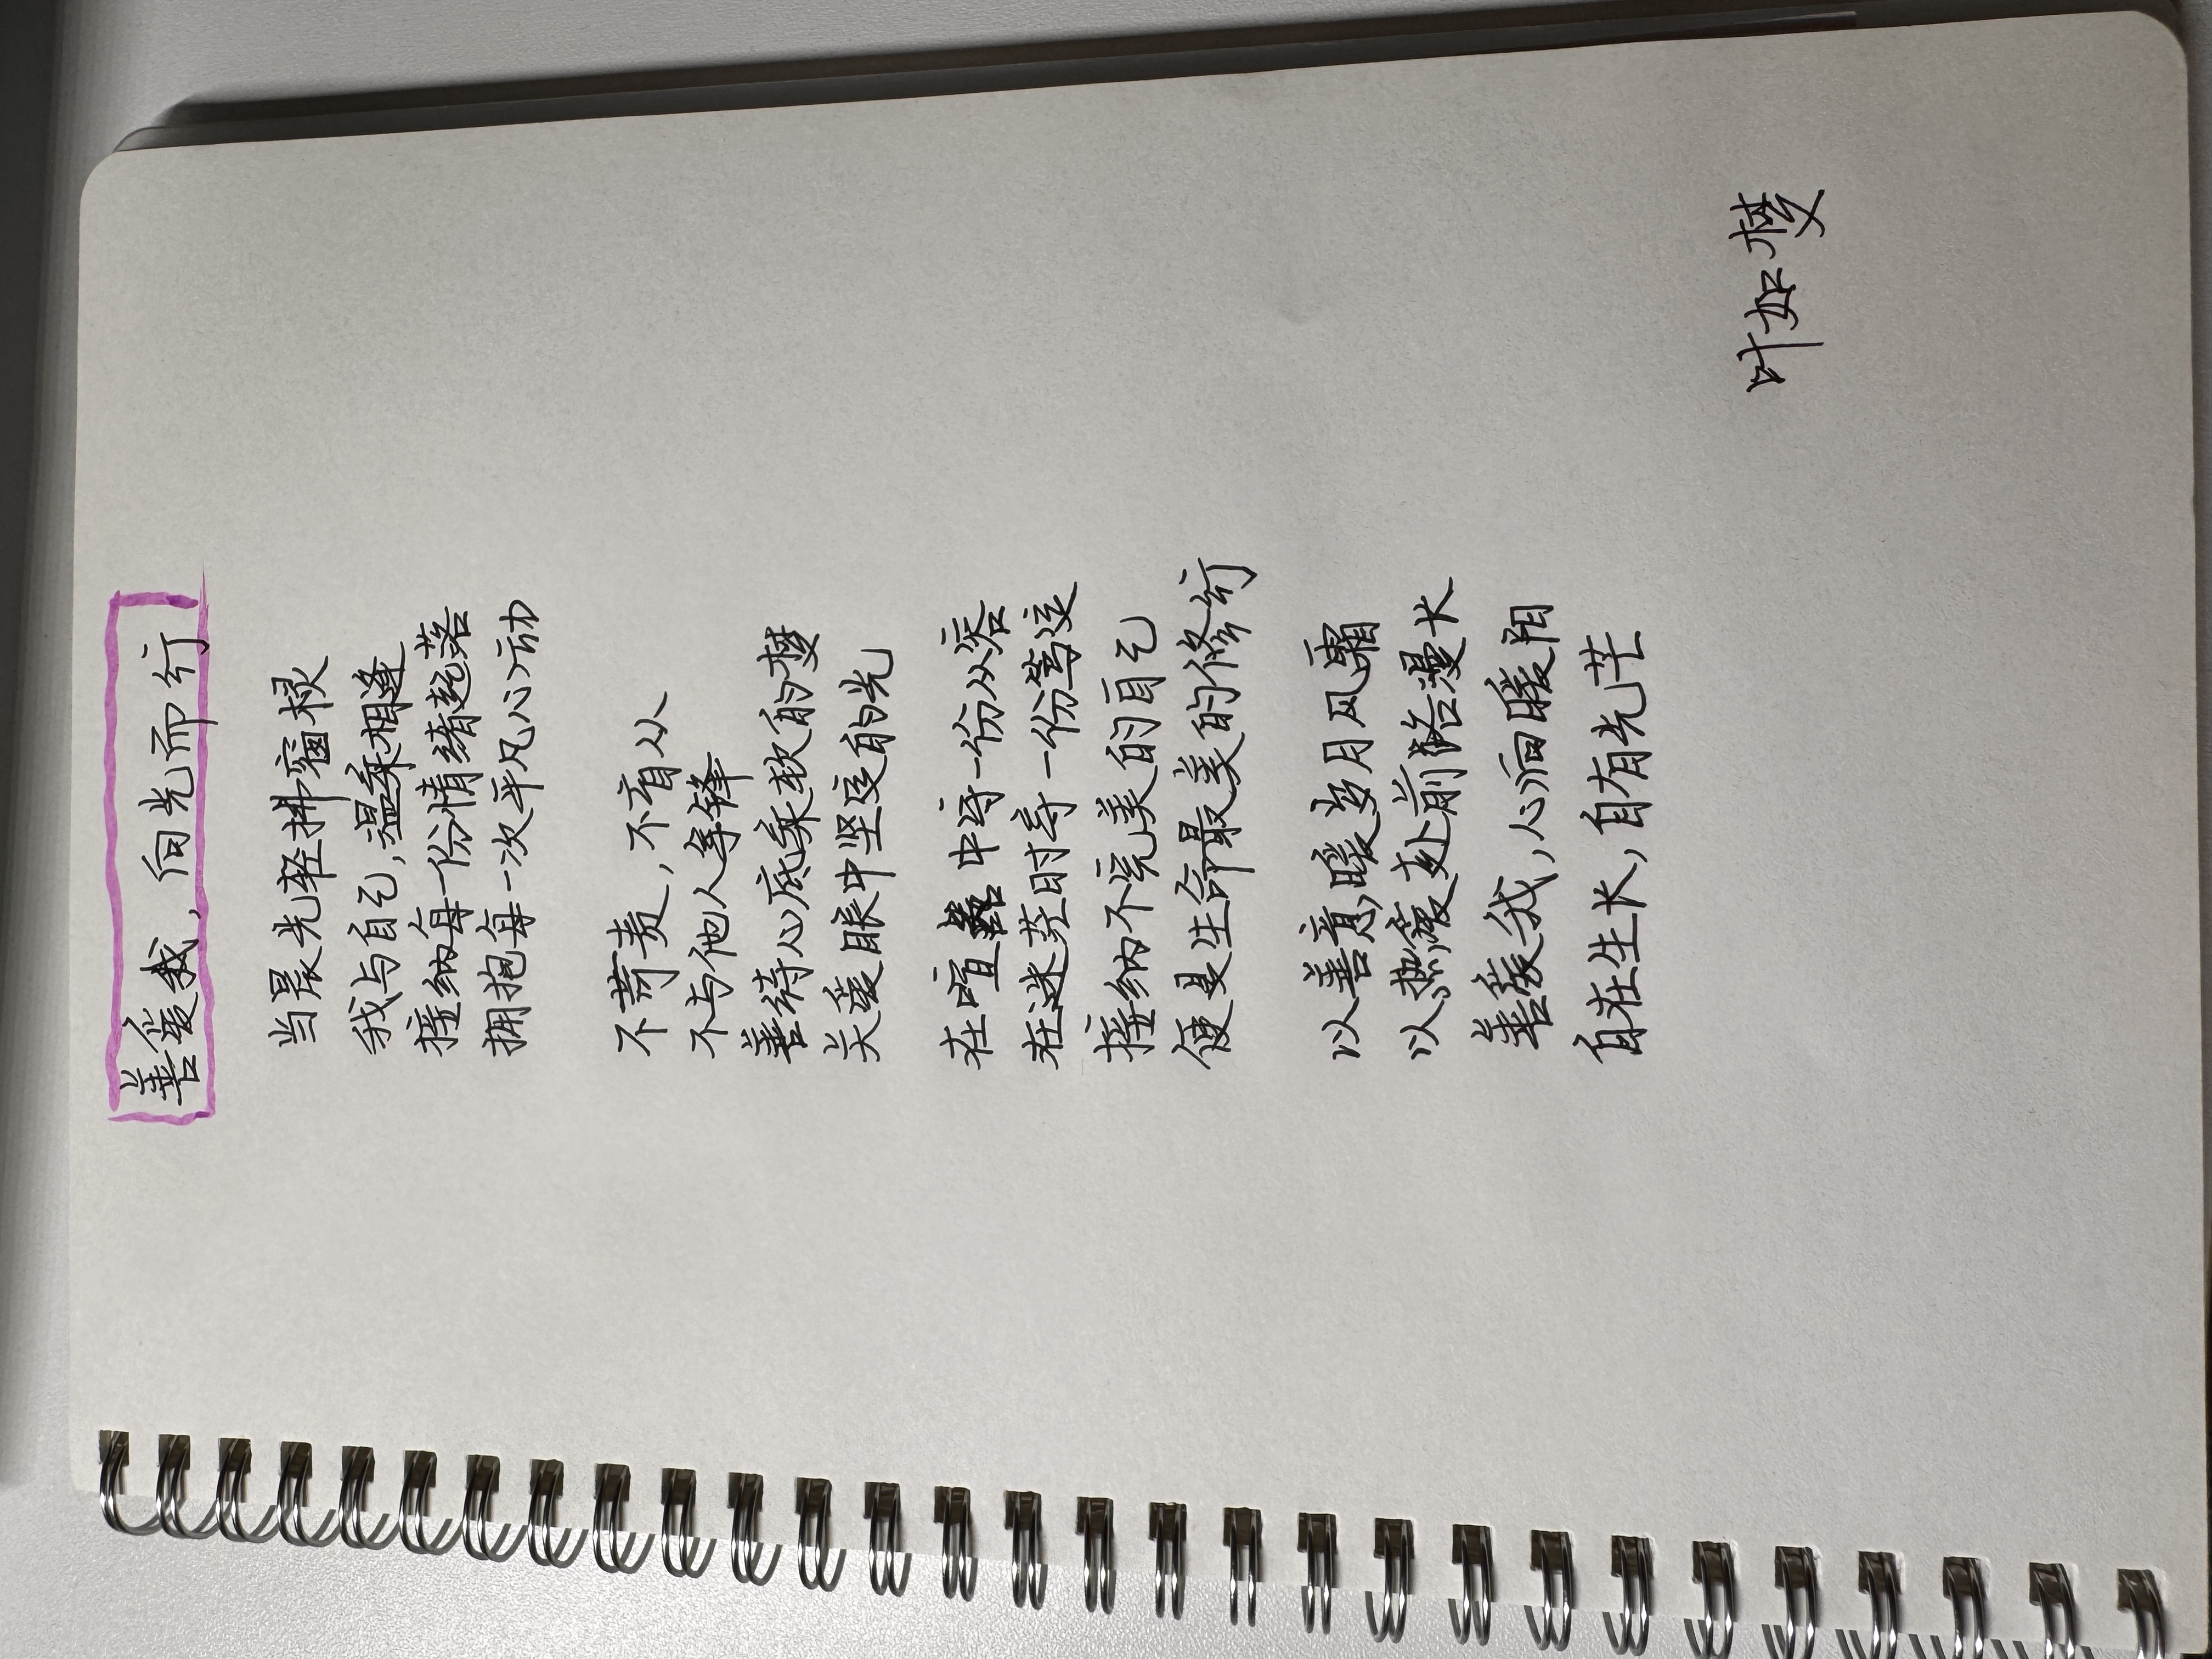 善爱我，向光而行
当晨光轻拂窗棂
我与自己，温柔相逢
接纳每一份情绪起落
拥抱每一次平凡心动
不苛责，不盲从
不与他人争锋
善待心底柔软的梦
关爱眼中坚定的光
在喧嚣中守一份从容
在迷茫时守一份笃定
接纳不完美的自己
便是生命最美的修行
以善意，暖岁月风霜
以热爱赴前路漫长
善爱我，心向暖阳
自在生长，自有光芒
叶如梦